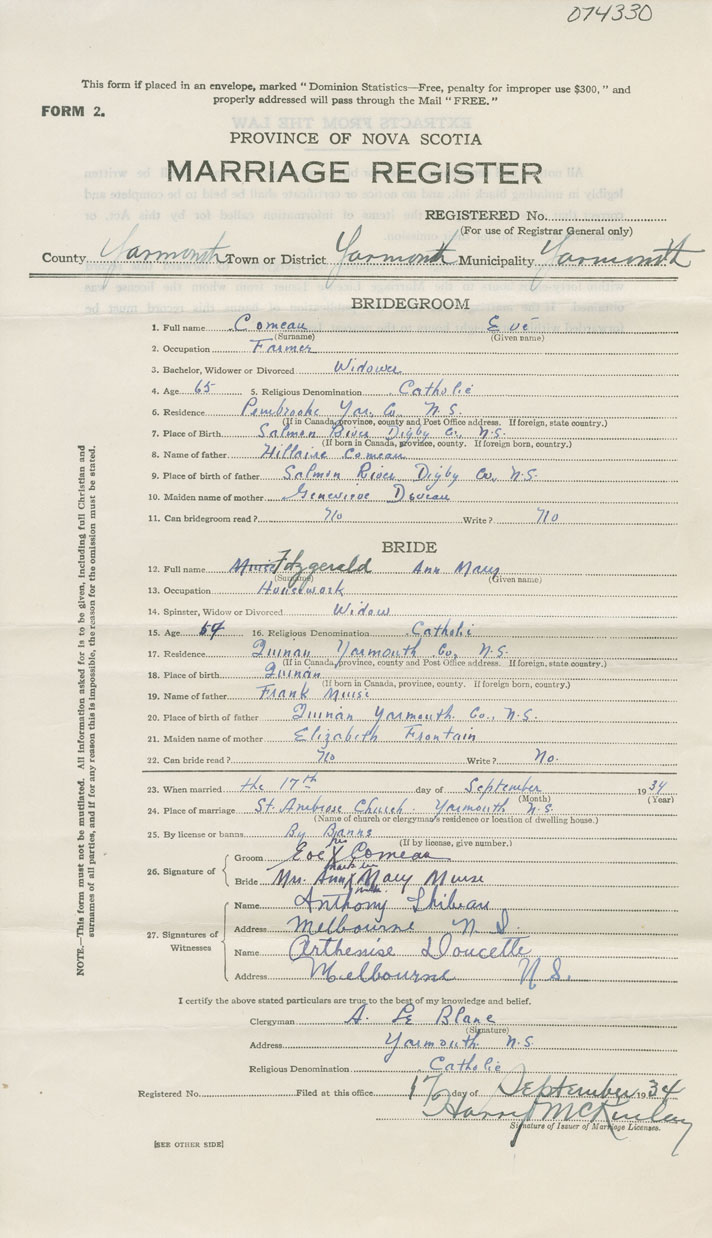 074330
This form if placed in an envelope, marked "Dominion Statistics—Free, penalty for improper use $300," and
properly addressed will pass through the Mail "FREE."
FORM 2.
PROVINCE OF NOVA SCOTIA
MARRIAGE REGISTER
REGISTERED No.
(For use of Registrar General only)
County Yarmouth Town or District Yarmouth Municipality Yarmouth
BRIDEGROOM
1. Full name Comeau Evé
(Surname) (Given name)
2. Occupation Farmer
3. Bachelor, Widower or Divorced Widower
4. Age 65 5. Religious Denomination Catholic
6. Residence Pembrooke Yar. Co. N.S.
(If in Canada, province, county and Post Office address. If foreign, state country.)
7. Place of Birth Salmon River Digby Co., N.S.
(If born in Canada, province, county. If foreign born, country.)
8. Name of father Hillaire Comeau
9. Place of birth of father Salmon River Digby Co, N.S.
10. Maiden name of mother Genevieve Deveau
11. Can bridegroom read? No Write? No
BRIDE
12. Full name Fitzgerald Ann Mary
(Surname) (Given name)
13. Occupation Housework
14. Spinster, Widow or Divorced Widow
15. Age 54 16. Religious Denomination Catholic
17. Residence Quinan Yarmouth Co., N.S.
(If in Canada, province, county and Post Office address. If foreign, state country.)
18. Place of Birth Quinan
(If born in Canada, province, county. If foreign born, country.)
19. Name of father Frank Muise
20. Place of birth of father Quinan Yarmouth Co., N.S.
21. Maiden name of mother Elizabeth Frontain
22. Can bride read? No Write? No.
23. When married the 17th day of September 1934
(Month) (Year)
24. Place of marriage St. Ambrose Church Yarmouth N.S.
(Name of church or clergyman's residence or location of dwelling house.)
25. By license or banns By Banns
(If by license, give number.)
26. Signature of
Groom Eve X Comeau
his mark
Bride Mrs. Ann X Mary Muise
27. Signatures of Witnesses
Name Anthony Thibeau
Address Melbourne N.S.
Name Arthenise Doucette
Address Melbourne N.S.
I certify the above stated particulars are true to the best of my knowledge and belief.
Clergyman A. Le Blanc
(Signature)
Address Yarmouth N.S.
Religious Denomination Catholic
Registered No. Filed at this office 17 day of September 1934
Harry McKinlay
Signature of Issuer of Marriage Licenses.
[SEE OTHER SIDE]
NOTE.—This form must not be mutilated. All information asked for is to be given, including full Christian and
surnames of all parties, and if for any reason this is impossible, the reason for the omission must be stated.